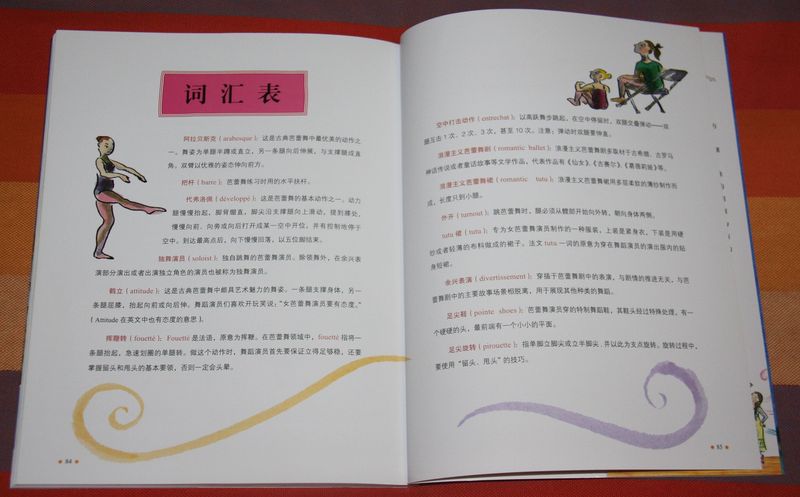 词汇表
阿拉贝斯克（arabesque）：这是古典芭蕾舞中最优美的动作之
一。舞姿为单腿半蹲或直立，另一条腿向后伸展，与支撑腿成直
角，双臂以优雅的姿态伸向前方。
把杆（barre）：芭蕾舞练习时用的水平扶杆。
代弗洛佩（développé）：这是芭蕾舞的基本动作之一。动力
腿慢慢抬起，脚背绷直，脚尖沿支撑腿向上滑动，提到膝处，
慢慢向前、向旁或向后打开成某一空中开位，并有控制地停于
空中。到达最高点后，向下慢慢回落，以五位脚结束。
独舞演员（soloist）：独自跳舞的芭蕾舞演员。除领舞外，在余兴表
演部分演出或者出演独立角色的演员也被称为独舞演员。
鹤立（attitude）：这是古典芭蕾舞中颇具艺术魅力的舞姿。一条腿支撑身体，另一
条腿屈膝，抬起向前或向后伸。舞蹈演员们喜欢开玩笑说：“女芭蕾舞演员要有态度。”
（Attitude 在英文中也有态度的意思）。
挥鞭转（fouetté）：Fouetté是法语，原意为挥鞭。在芭蕾舞领域中，fouetté 指将一
条腿抬起，急速划圈的单腿转。做这个动作时，舞蹈演员首先要保证立得足够稳，还要
掌握留头和甩头的基本要领，否则一定会头晕。
84
空中打击动作（entrechat）：以高跃舞步跳起，在空中停留时，双腿交叠弹动——双
腿互击 1 次、2 次、3 次，甚至 10 次。注意：弹动时双腿要伸直。
浪漫主义芭蕾舞剧（romantic ballet）：浪漫主义芭蕾舞剧多取材于古希腊、古罗马
神话传说或者童话故事等文学作品，代表作品有《仙女》、《吉赛尔》、《葛蓓莉娅》等。
浪漫主义芭蕾舞裙（romantic tutu）：浪漫主义芭蕾舞裙用多层柔软的薄纱制作而
成，长度只到小腿。
外开（turnout）：跳芭蕾舞时，腿必须从髋部开始向外转，朝向身体两侧。
tutu 裙（tutu）：专为女芭蕾舞演员制作的一种服装，上装是紧身衣，下装是用硬
纱或者轻薄的布料做成的裙子。法文 tutu 一词的原意为穿在舞蹈演员的演出服内的贴
身短裙。
余兴表演（divertissement）：穿插于芭蕾舞剧中的表演，与剧情的推进无关，与芭
蕾舞剧中的主要故事场景相脱离，用于展现其他种类的舞蹈。
足尖鞋（pointe shoes）：芭蕾舞演员穿的特制舞蹈鞋，其鞋头经过特殊处理，有一
个硬硬的头，最前端有一个小小的平面。
足尖旋转（pirouette）：指单脚立脚尖或立半脚尖，并以此为支点旋转。旋转过程中，
要使用“留头、甩头”的技巧。
85